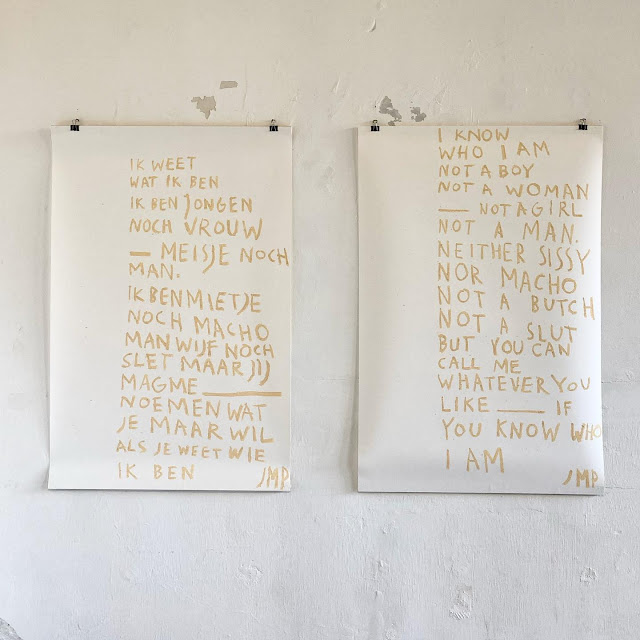 IK WEET
WAT IK BEN
IK BEN JONGEN
NOCH VROUW
— MEISJE NOCH
MAN.
IK BEN MIETJE
NOCH MACHO
MANWIJF NOCH
SLET MAAR JIJ
MAG ME ———
NOEMEN WAT
JE MAAR WIL
ALS JE WEET WIE
IK BEN JMP
I KNOW
WHO I AM
NOT A BOY
NOT A WOMAN
— NOT A GIRL
NOT A MAN.
NEITHER SISSY
NOR MACHO
NOT A BUTCH
NOT A SLUT
BUT YOU CAN
CALL ME
WHATEVER YOU
LIKE —— IF
YOU KNOW WHO
I AM JMP